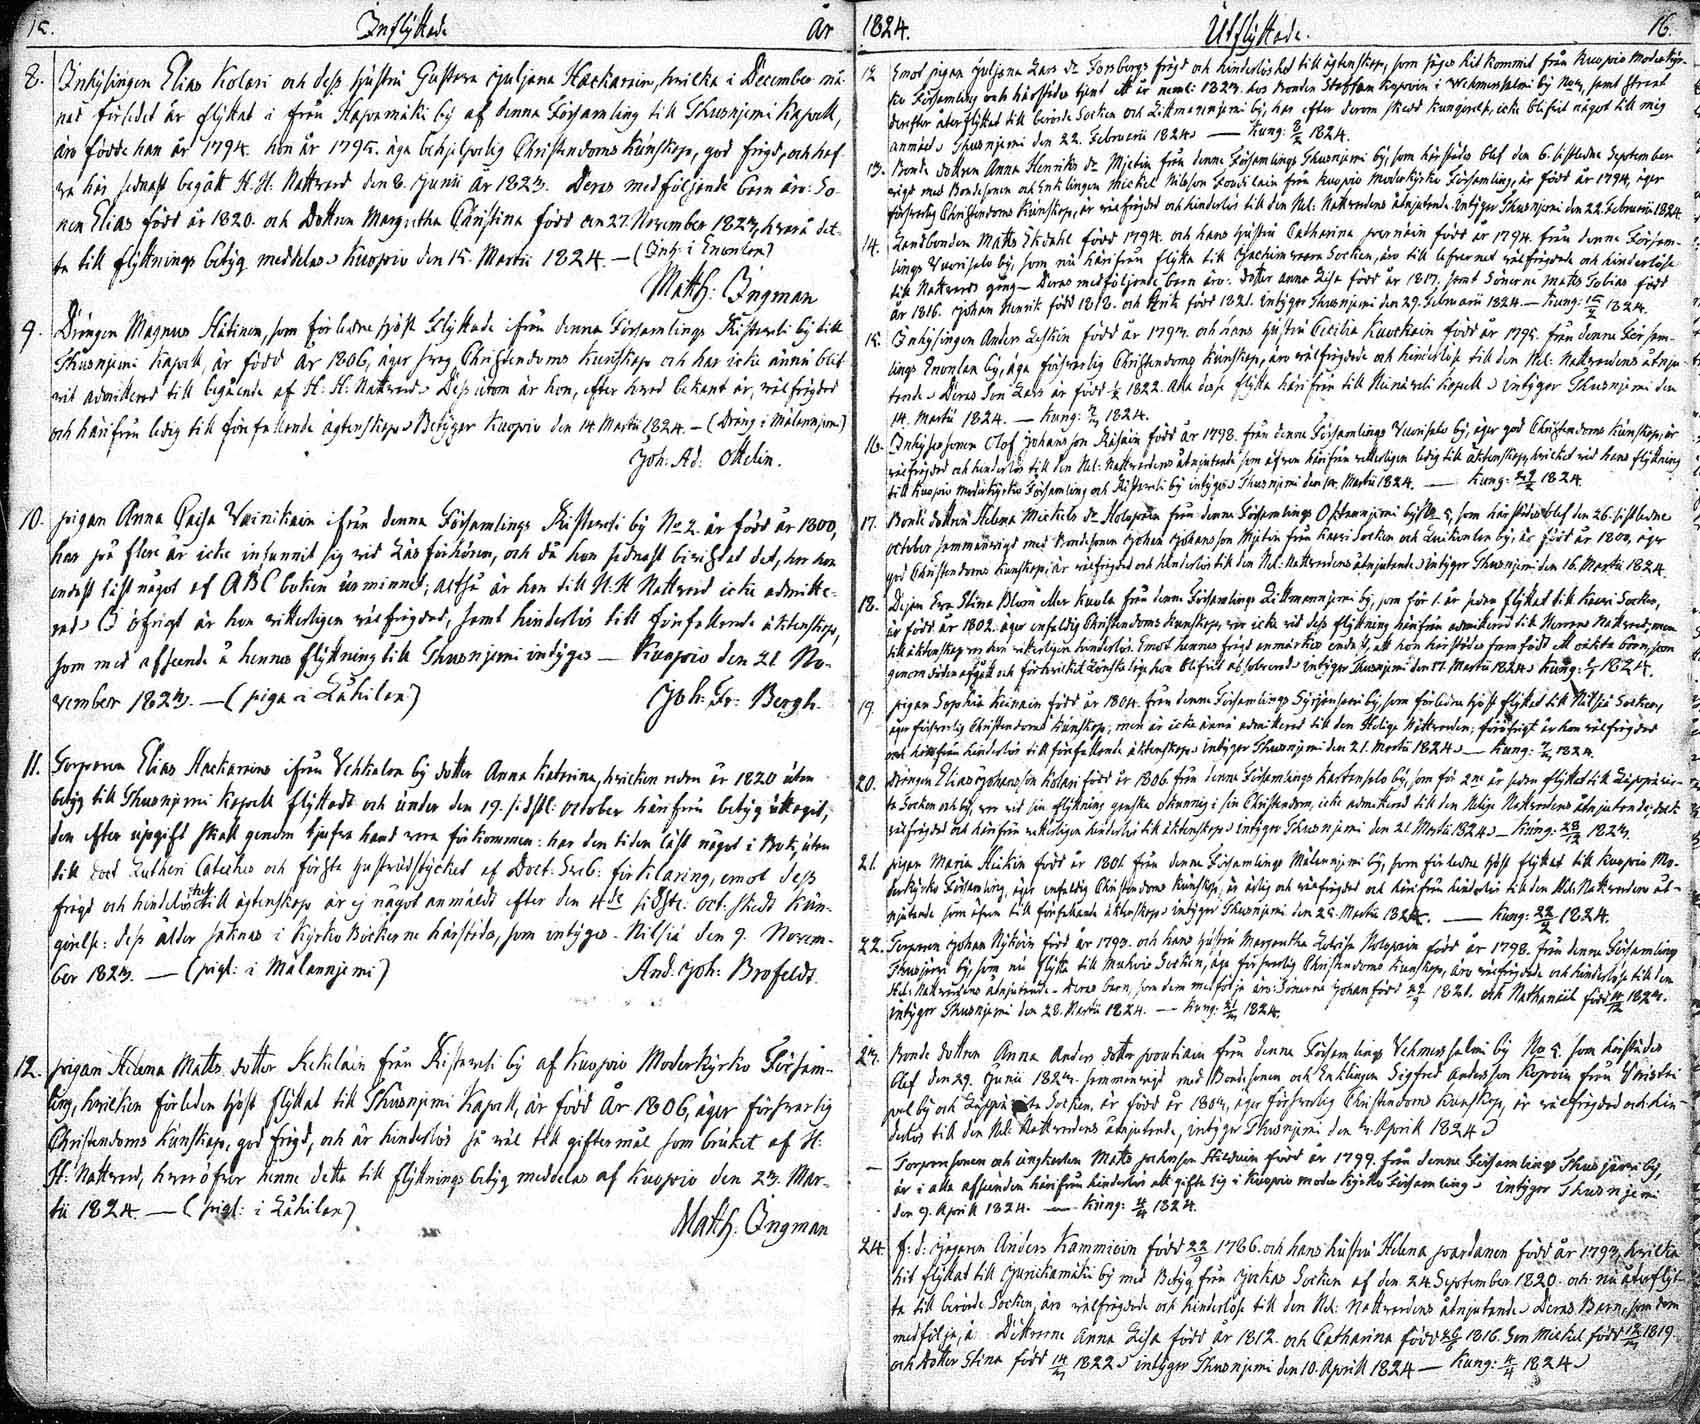 15. Inflÿttade År
8. Inhÿsingen Elias Kolari och dess hustru Gustava Juliana Hackarain, hvilka i December må-
nad förledet år flÿttat i från Hapamäki bÿ af denna Församling till Thusnjemi Kapell,
äro födde han år 1794. hon år 1795. äga behjelpelig Christendoms Kunskap, god frägd, och haf-
va här sednast begått H: H: Nattvard den 8. Junii år 1823. Deras medföljande barn äro: So-
nen Elias född år 1820. och Dottren Margretha Christina född den 27. November 1823, hvarå det-
ta till flÿttnings betÿg meddelas Kuopio den 15. Martii 1824. — (Inh: i Enonlax)
Matth: Ingman
9. Drängen Magnus Hätinen, som förledne höst flÿttade ifrån denna Församlings Ristavesi bÿ till
Thusnjemi Kapell, är född år 1806, äger svag Christendoms Kunskap och har icke ännu blif-
vit admitterad till begående af H: H: Nattvard. Dess utom är hon, efter hvad bekant är, välfrägdad
och härifrån ledig till förefallande ägtenskap. Betÿger Kuopio den 14 Martii 1824. — (Dräng i Målannjemi)
Joh: Ad: Ottelin.
10. pigan Anna Caisa Vainikain ifrån denna Församlings Ristavesi bÿ No 2. är född år 1800,
har på flere år icke infunnit sig vid Läsförhören, och då hon sednast bivistat det, har hon
endast läst något af ABC boken ur minnet; altså är hon till H: H Nattvard icke admitte-
rad. I öfrigt är hon vitterligen välfrägdad, samt hinderlös till förefallande äktenskap,
som med afseende å hennes flÿttning till Thusnjemi intÿgas — Kuopio den 21 No-
vember 1823. — (piga i Lähilax)
Joh: Fr: Bergh.
11. Torparen Elias Hackarains ifrån Vehkalax bÿ dotter Anna Katrina, hvilken redan år 1820 utan
betÿg till Thusnjemi Kapell flÿttadt och under den 19. sidstl: October härifrån betÿg uttagit,
den efter upgift skall genom tjufva hand vara förkommen: har den tiden läst något i Bok, utan
till doct Lutheri Cateches och första hustruds stÿcket af Doct: Sveb: förklaring, emot dess
frägd och hinderlöshet till ägtenskap är ej något anmäldt efter den 4de sidste: Oct: skedt Kun-
görelse: dess ålder saknas i Kÿrko Böckerne härstädes, som intÿgas. Nilsiä den 9. Novem-
ber 1823. — (pigl: i Målannjemi)
And: Joh: Brofeldt.
12. pigan Helena Matts dotter Kekeläin från Ristavesi bÿ af Kuopio Moderkÿrko Försam-
ling, hvilken förleden höst flÿttat till Thusnjemi Kapell, är född År 1806, äger försvarlig
Christendoms Kunskap, god frägd, och är hinderlös så väl till giftermål som bruket af H:
H: Nattvard, hvaröfver henne detta till flÿttnings betÿg meddelas af Kuopio den 23. Mar-
tii 1824. — (pigl: i Lähilax)
Matth: Ingman
1824. Utflÿttade. 16.
12 Emot pigan Juljana Lars dr Forsbergs frägd och hinderlöshet till ägtenskap, som säges hit kommit från Kuopio Moderkÿr-
ko Församling och härstädes tjent ett år neml: 1823. hos Bonden Staffan Kopoin i Wehmersalmi bÿ No 4, samt straxt
derefter återflÿttat till berörde Socken och Litmannjemi bÿ, har efter derom skedd kungörelse, icke blifvit något till mig
anmält. Thusnjemi den 22. Februarii 1824. — Kung: 8/2 1824.
13. Bonde dottren Anna Henriks dr Mjetin från denne Församlings Thusnjemi bÿ, som härstädes blef den 6. sistledne September
vigd med Bondesonen och Enklingen Mickel Nilsson Kondilain från Kuopio Moderkÿrko Församling, är född år 1794, äger
försvarlig Christendoms Kunskap, är välfrägdad och hinderlös till den Hel: Nattvardens åtnjutande. Intÿger Thusnjemi den 22. Februarii 1824.
14. Landbonden Matts Ekdahl född 1794. och hans hustru Catharina född år 1794. från denne Försam-
lings Vuorisalo bÿ, som nu härifrån flÿtta till Joachimvaara Socken, äro till lefvernet välfrägdade och hinderlöse
till Nattvards gång — Deras medföljande barn äro: dotter Anna Lisa född år 1817, samt Sönerne Matts Tobias född
år 1816. Johan Henrik född 1818. och Erik född 1821. Intÿger Thusnjemi den 29. Februarii 1824. — Kung: 15/2 1824.
15. Inhÿsingen Anders Leskin född år 1793. och hans hustru Cecilia Kuoskain född år 1795. från denne Försam-
lings Enonlax bÿ, äga försvarlig Christendoms Kunskap, äro välfrägdade och hinderlöse till den Hel: Nattvardens åtnju-
tande. Deras Son Lars är född 1822. Alla desse flÿtta härifrån till Kapell. intÿger Thusnjemi den
14. Martii 1824. — Kung: 1824.
16. Inhÿsessonen Olof Johansson Räsäin född år 1798. från denne Församlings Vuorisalo bÿ, äger god Christendoms Kunskap, är
välfrägdad och hinderlös till den Hel: Nattvardens åtnjutande som äfven härifrån vitterligen ledig till äktenskap, hvilket vid hans flÿttning
till Kuopio Moderkÿrko Församling och Ristavesi bÿ intÿgas. Thusnjemi den 14. Martii 1824. — Kung: 1824.
17. Bonde dottren Helena Mickels dr Holopain från denne Församlings Oskannjemi bÿ No 5, som härstädes blef den 26. sistledne
October sammanvigd med Bondesonen Johan Johansson Mjetin från Kaavi Socken och bÿ, är född år 1800, äger
god Christendoms Kunskap, är välfrägdad och hinderlös till den Hel: Nattvardens åtnjutande. intÿger Thusnjemi den 16. Martii 1824.
18. Pigan Eva Stina Blom eller Kuula från denne Församlings Littmannjemi bÿ, som för 1. år sedan flÿttat till Kaavi Socken,
är född år 1802. äger enfaldig Christendoms Kunskap, var icke vid dess flÿttning härifrån admitterad till Herrans Nattvard, men
till äktenskap var den vitterligen hinderlös. Emot hennes frägd anmärkes endast, att hon härstädes framfödt ett oäkta barn, som
genom döden afgått och för hvilket Lönskaläge hon blifvit absolverad. intÿger Thusnjemi den 17. Martii 1824. Kung: 1824.
19. pigan Sophia Keinain född år 1804. från denne Församlings bÿ, som förledne höst flÿttat till Nilsiä Socken,
äger försvarlig Christendoms Kunskap, men är icke ännu admitterad till den Helige Nattvarden; föröfrigt är hon välfrägdad
och härifrån hinderlös till förefallande äktenskap. intÿger Thusnjemi den 21. Martii 1824. — Kung: 1824.
20. Drängen Elias Johansson Kolari född år 1806. från denne Församlings Kartansalo bÿ, som för 2ne år sedan flÿttat till Läppävir-
ta Socken och bÿ, var vid sin flÿttning ganska okunnig i sin Christendom, icke admitterad till den Helige Nattvardens åtnjutande; dock
välfrägdad och härifrån vitterligen hinderlös till äktenskap. intÿger Thusnjemi den 21. Martii 1824. — Kung: 28/12 1823.
21. pigan Maria Heikin född år 1801 från denne Församlings Målannjemi bÿ, som förledne höst flÿttat till Kuopio Mo-
derkÿrko Församling, äger enfaldig Christendoms Kunskap, är ärlig och välfrägdad och härifrån hinderlös till den Hel: Nattvardens åt-
njutande som äfven till förefallande äktenskap. intÿger Thusnjemi den 25. Martii 1824. — Kung: 22/2 1824.
22. Torparen Johan Nÿkäin född år 1793. och hans hustru Margretha Lovisa Holopain född år 1798. från denne Församlings
Thusjärvi bÿ, som nu flÿtta till Socken, äga försvarlig Christendoms Kunskap, äro välfrägdade och hinderlöse till den
Hel: Nattvardens åtnjutande. Deras barn, som dem medfölja äro: Sönerne Johan född 1821. och Nathanael född 1823.
intÿger Thusnjemi den 28. Martii 1824. — Kung: 1824.
23. Bonde dottren Anna Anders dotter poutiain från denne Församlings Vehmersalmi bÿ No 5. som härstädes
blef den 29. Junii 1823. sammanvigd med Bondesonen och Enklingen Sigfred Andersson Kopoin från
bÿ och Läppävirta Socken, är född år 1803, äger försvarlig Christendoms Kunskap, är välfrägdad och hin-
derlös till den Hel: Nattvardens åtnjutande, intÿger Thusnjemi den Aprill 1824.
— Torparesonen och ungkarlen Matts Hilduin född år 1799. från denne Församlings Thusjärvi bÿ,
är i alla afseenden härifrån hinderlös att gifta sig i Kuopio moder kÿrko Församling. intÿger Thusnjemi
den 9. Aprill 1824. — Kung: 1824.
24 f: d: Jägaren Anders Kammioin född 22/9 1786. och hans hustru Helena pardanen född år 1793, hvilka
hit flÿttat till Jurickamäki bÿ med Betÿg från Jockas Socken af den 24. September 1820. och nu återflÿt-
ta till berörde Socken, äro välfrägdade och hinderlöse till den Hel: Nattvardens åtnjutande. Deras Barn, som dem
medfölja, ä: Döttrarne Anna Lisa född år 1812. och Catharina född 1816. Son Mickel född 1819.
och dotter Stina född 1822. intÿger Thusnjemi den 10. Aprill 1824 — Kung: 4/4 1824.